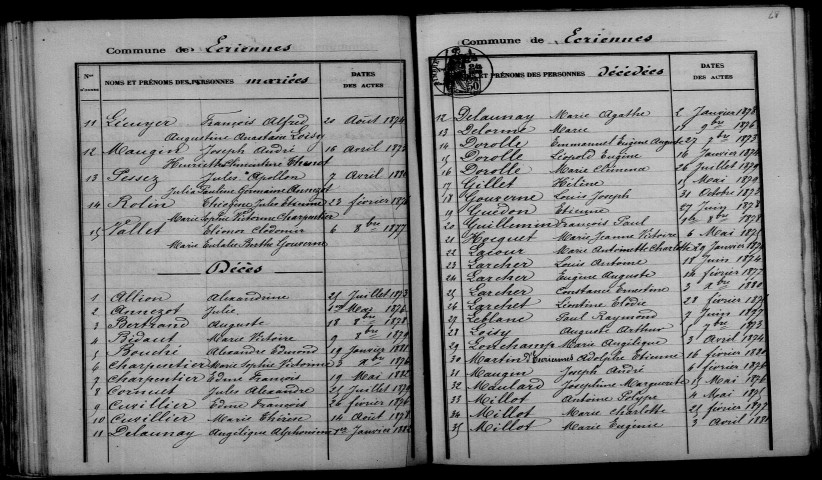 Commune de Ecriennes
Nos d'ordre NOMS ET PRÉNOMS DES PERSONNES mariées DATES DES ACTES
11 Lieuyer François Alfred 20 Août 1874
Augustine Anastasie Loisy
12 Maugin Joseph André 16 avril 1873
13 Pessez Jules Apollon 7 Avril 1880
Julie Pauline Germaine Annezot
14 Rolin Théogène Jules Etienne 23 février
Marie Sophie Victorine Charpentier
15 Vallet Elionor Clodomir 6 8bre 1877
Marie Eulalie Berthe Gouverne
Décès
1 Allion Alexandrine 25 Juillet 1873
2 Annezot Julie 1er Mai 1876
3 Bertrand Auguste 18 8bre 1878
4 Bidaut Marie Victoire 9 8bre 1879
5 Bouché Alexandre Edmond 19 Janvier 1881
6 Charpentier Marie Sophie Victorine 3 1876
7 Charpentier Edme François 19 Mai 1882
8 Cornuet Jules Alexandre 25 Juillet 1879
9 Cuvillier Edme François 26 février 1876
10 Cuvillier Marie Thérèse 14 Août 1878
11 Delaunay Angélique Alphonsine 1er Janvier 1882
68
Commune de Ecriennes
ET PRÉNOMS DES PERSONNES décédées DATES DES ACTES
12 Delaunay Marie Agathe 2 Janvier 1878
13 Delorme Marie 17 9bre 1876
14 Dorolle Emmanuel Eugène Auguste 27 7bre 1873
15 Dorolle Léopold Eugène 16 Janvier 1874
16 Dorolle Marie Clémma 26 Juillet 1879
17 Gillet Hélène 15 Mai 1879
18 Gouverne Louis Joseph 31 Octobre 1873
19 Guédon Etienne 27 Juin 1878
20 Guillemin François Paul 1er 8bre 1878
21 Hocquet Marie Jeanne Victoire 6 Mai 1875
22 Lacour Marie Antoinette Charlotte 29 Janvier
23 Larcher Louis Antoine 18 Juin 1874
24 Larcher Eugène Auguste 14 février 1877
25 Larcher Constance Ernestine 3 1880
26 Larchet Léontine Elodie 28 février
27 Leblanc Paul Raymond 7 Juin 1877
28 Loisy Auguste Arthur 7bre 1873
29 Lonchamp Marie Angélique 3 Avril 1874
30 Martin d'Ecriennes Adolphe Etienne 16 février 1880
31 Maugin Joseph André 6 février 1876
32 Maulard Joséphine Marguerite 15 Mai 1876
33 Millot Antoine Polype 4 Mai 1875
34 Millot Marie Charlotte 25 février 1877
35 Millot Marie Eugénie 3 Avril 1881